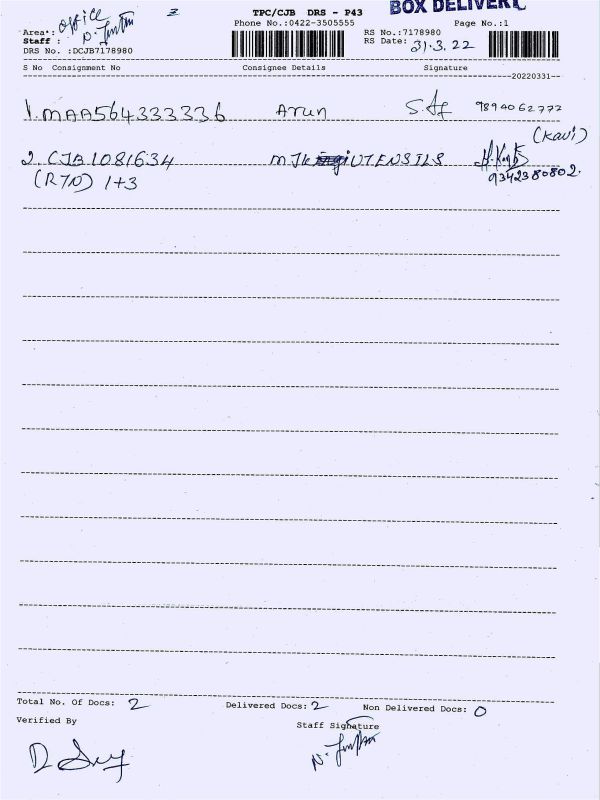 BOX DELIVERY
TPC/CJB DRS - P43
Phone No.:0422-3505555
Page No.:1
Area*: office
Staff :
DRS No. :DCJB7178980
RS No.:7178980
RS Date: 31.3.22
S No Consignment No Consignee Details Signature
20220331
1. MAA564333336 Arun 9894062772
(Kavi)
2. CJB1081634 MJK UTENSILS
(R7N) 1+3 9342380802.
Total No. Of Docs: 2 Delivered Docs: 2 Non Delivered Docs: 0
Verified By Staff Signature